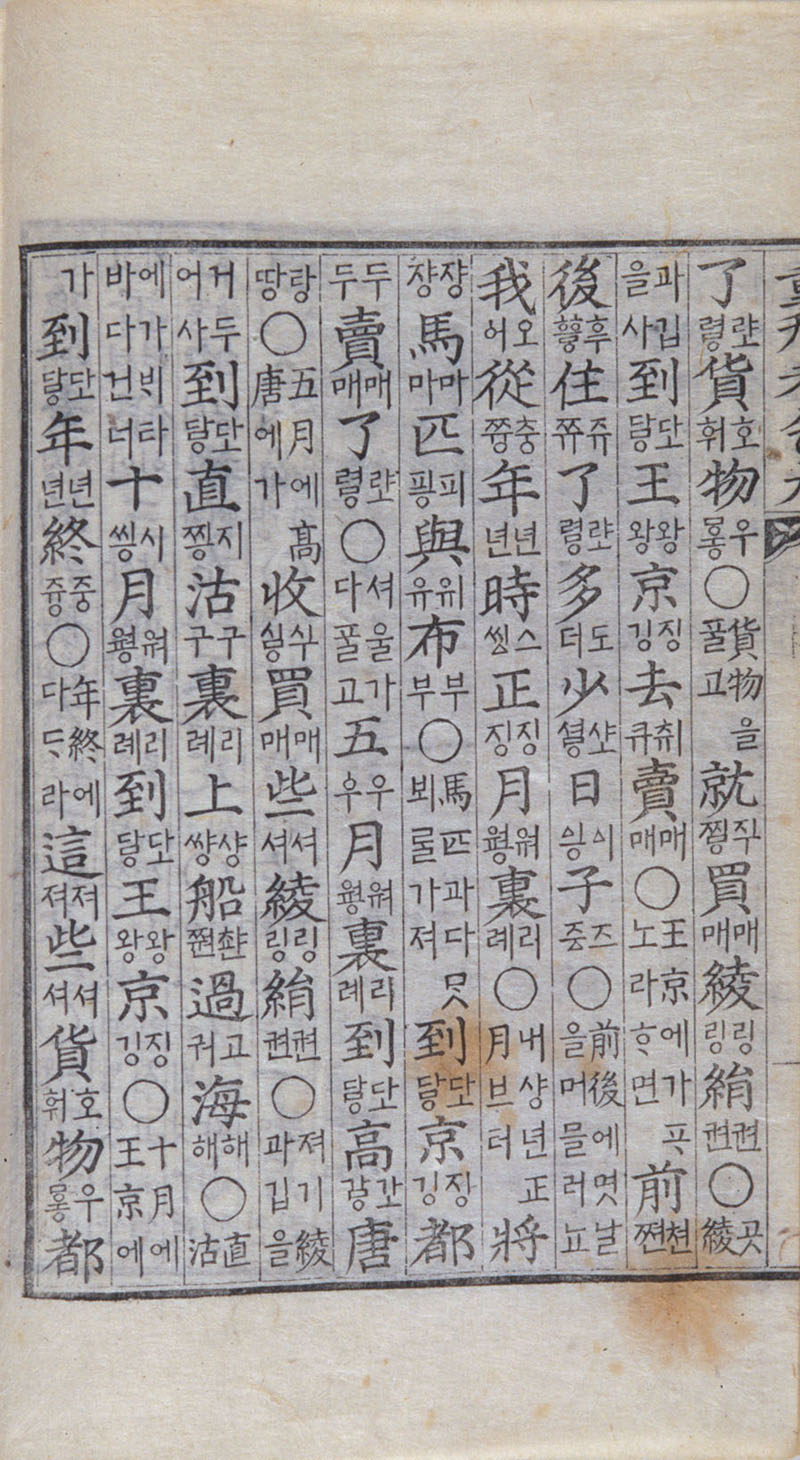 重刊老乞大
了령랸貨휘호物뭏우○貨物을풀고就찡직買매매綾링링絹권권○곳綾
과깁을사到닿단王왕왕京깅징去큐취賣매매○王京에가ᄑᆞ노라ᄒᆞ면前쪈쳔
後흫후住쮸쥬了령랸多더도少셩샤日싕이子즁즈○前後에몃날을머믈러뇨
我어오從쭝충年년년時씽스正징징月웡워裏례리○내샹년正月브터將
쟝쟝馬마마匹핑피與유위布부부○馬匹과다ᄆᆞᆺ뵈롤가져到닿단京깅징都
두두賣매매了령랸○셔울가다풀고五우우月웡워裏례리到닿단高강간唐
땅탕○五月에高唐에가收싷식買매매些셔셔綾링링絹권권○져기綾과깁을
거두어사到닿단直찡지沽구구裏례리上썅샹船쪈촨過궈고海해해○直沽
에가ᄇᆡ타바다건너十씽시月웡워裏례리到닿단王왕왕京깅징○十月에王京에
가到닿단年년년終즁중○年終에다ᄃᆞ라這져져些셔셔貨휘호物뭏우都